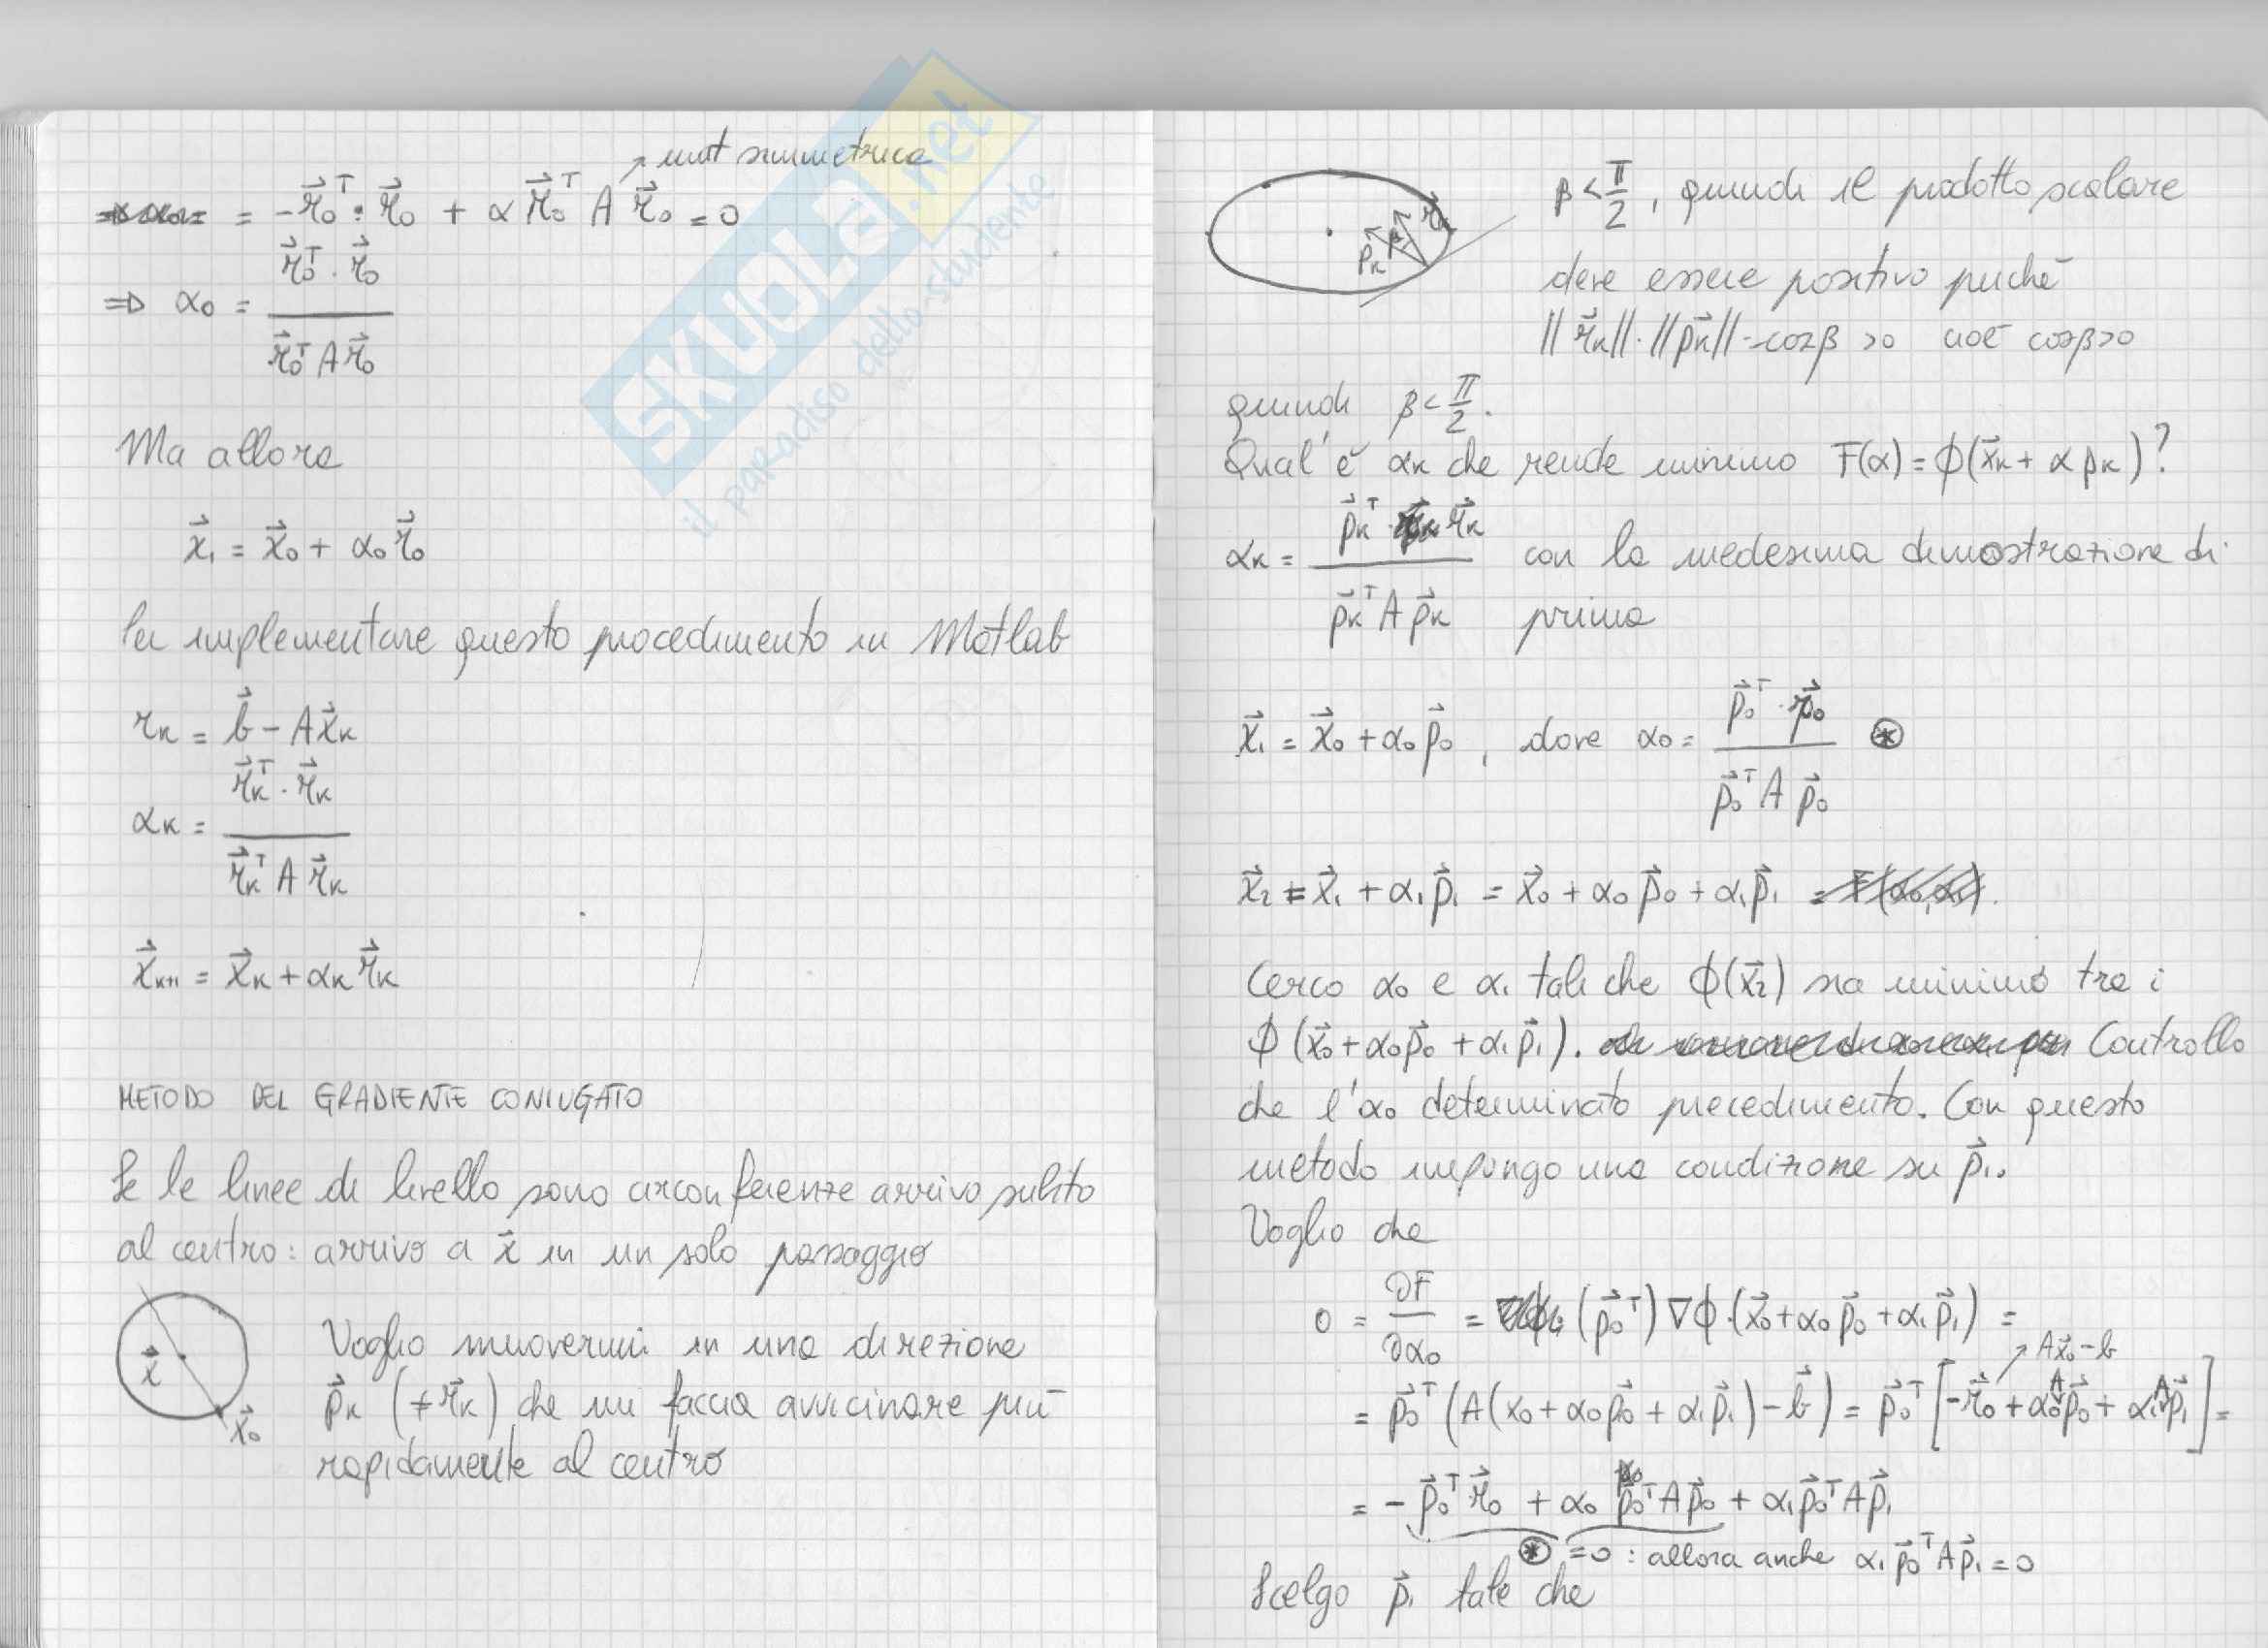 mat simmetrica
= -r₀ᵀ · r₀ + α r₀ᵀ A r₀ = 0
⇒ α₀ = r₀ᵀ · r₀ / r₀ᵀ A r₀
Ma allora
x₁ = x₀ + α₀ r₀
Per implementare questo procedimento in Matlab
rₖ = b - A xₖ
αₖ = rₖᵀ · rₖ / rₖᵀ A rₖ
xₖ₊₁ = xₖ + αₖ rₖ
METODO DEL GRADIENTE CONIUGATO
Se le linee di livello sono circonferenze arrivo subito
al centro: arrivo a x in un solo passaggio
x
x₀
Voglio muovermi in una direzione
pₖ (≠ rₖ) che mi faccia avvicinare più
rapidamente al centro
pₖ β rₖ
β < π/2, quindi il prodotto scalare
deve essere positivo perché
||rₖ|| · ||pₖ|| · cosβ >0 cioè cosβ>0
quindi β < π/2.
Qual'è αₖ che rende minimo F(α) = ϕ(xₖ + α pₖ)?
αₖ = pₖᵀ · rₖ / pₖᵀ A pₖ con la medesima dimostrazione di
prima
x₁ = x₀ + α₀ p₀, dove α₀ = p₀ᵀ · r₀ / p₀ᵀ A p₀ ⊛
x₂ = x₁ + α₁ p₁ = x₀ + α₀ p₀ + α₁ p₁
Cerco α₀ e α₁ tali che ϕ(x₂) sia minimo tra i
ϕ(x₀ + α₀ p₀ + α₁ p₁). Controllo
che l'α₀ determinato precedimento. Con questo
metodo impongo una condizione su p₁.
Voglio che
0 = ∂F/∂α₀ = (p₀ᵀ) ∇ϕ·(x₀ + α₀ p₀ + α₁ p₁) =
Ax₀ - b
= p₀ᵀ (A(x₀ + α₀ p₀ + α₁ p₁) - b) = p₀ᵀ [-r₀ + α₀ A p₀ + α₁ A p₁] =
= - p₀ᵀ r₀ + α₀ p₀ᵀ A p₀ + α₁ p₀ᵀ A p₁
⊛ =0 : allora anche α₁ p₀ᵀ A p₁ = 0
Scelgo p₁ tale che
SKUOLA.net
il paradiso dello studente